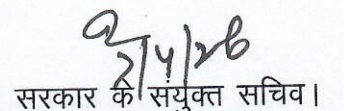 2/4/26
सरकार के संयुक्त सचिव।